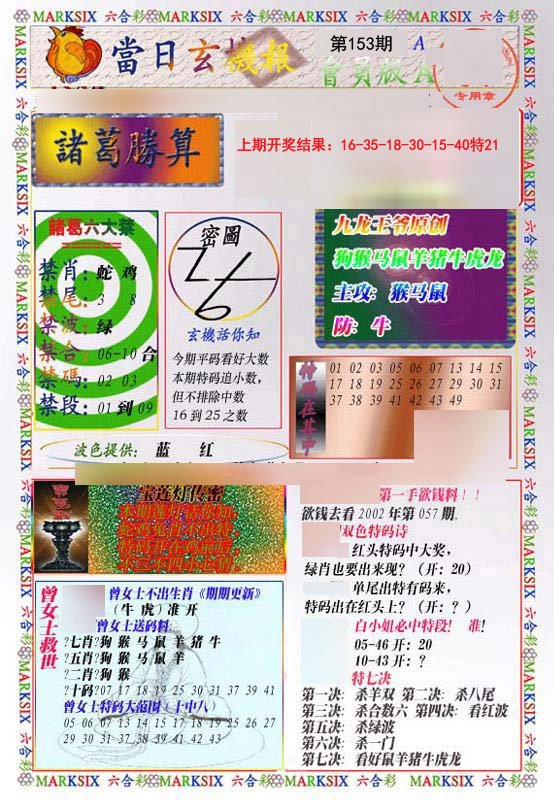 MARKSIX 六合彩 MARKSIX 六合彩 MARKSIX 六合彩 MARKSIX 六合彩
當日玄機報
第153期 A
會員版 A
专用章
諸葛勝算
上期开奖结果：16-35-18-30-15-40特21
諸葛六大禁
禁肖：蛇 鸡
禁尾：3 8
禁波：绿
禁合：06-10 合
禁碼：02 03
禁段：01 到 09
密圖
玄機話你知
今期平码看好大数
本期特码追小数，
但不排除中数
16 到 25 之数
九龙王爷原创
狗猴马鼠羊猪牛虎龙
主攻：猴马鼠
防：牛
特码在其中
01 02 03 05 06 07 13 14 15
17 18 19 25 26 27 29 30 31
37 38 39 41 42 43 49
波色提供： 蓝 红
宝莲灯传密
曾女士救世
曾女士不出生肖《期期更新》
（牛 虎）准 开
曾女士送码料
?七肖?狗 猴 马 鼠 羊 猪 牛
?五肖?狗 猴 马 鼠 羊
?二肖?狗 猴
?十码?07 17 18 19 25 30 31 37 39 41
曾女士特码大范围（十中八）
05 06 07 13 14 15 17 18 19 25 26 27
29 30 31 37 38 39 41 42 43
第一手欲钱料！！
欲钱去看 2002 年第 057 期.
双色特码诗
红头特码中大奖，
绿肖也要出来现？（开：20）
单尾出特有码来，
特码出在红头上？（开：？）
白小姐必中特段！ 准!
05-46 开：20
10-43 开：？
特七决
第一决：杀羊双 第二决：杀八尾
第三决：杀合数六 第四决：看红波
第五决：杀绿波
第六决：杀一门
第七决：看好鼠羊猪牛虎龙
MARKSIX 六合彩 MARKSIX 六合彩 MARKSIX 六合彩 MARKSIX 六合彩